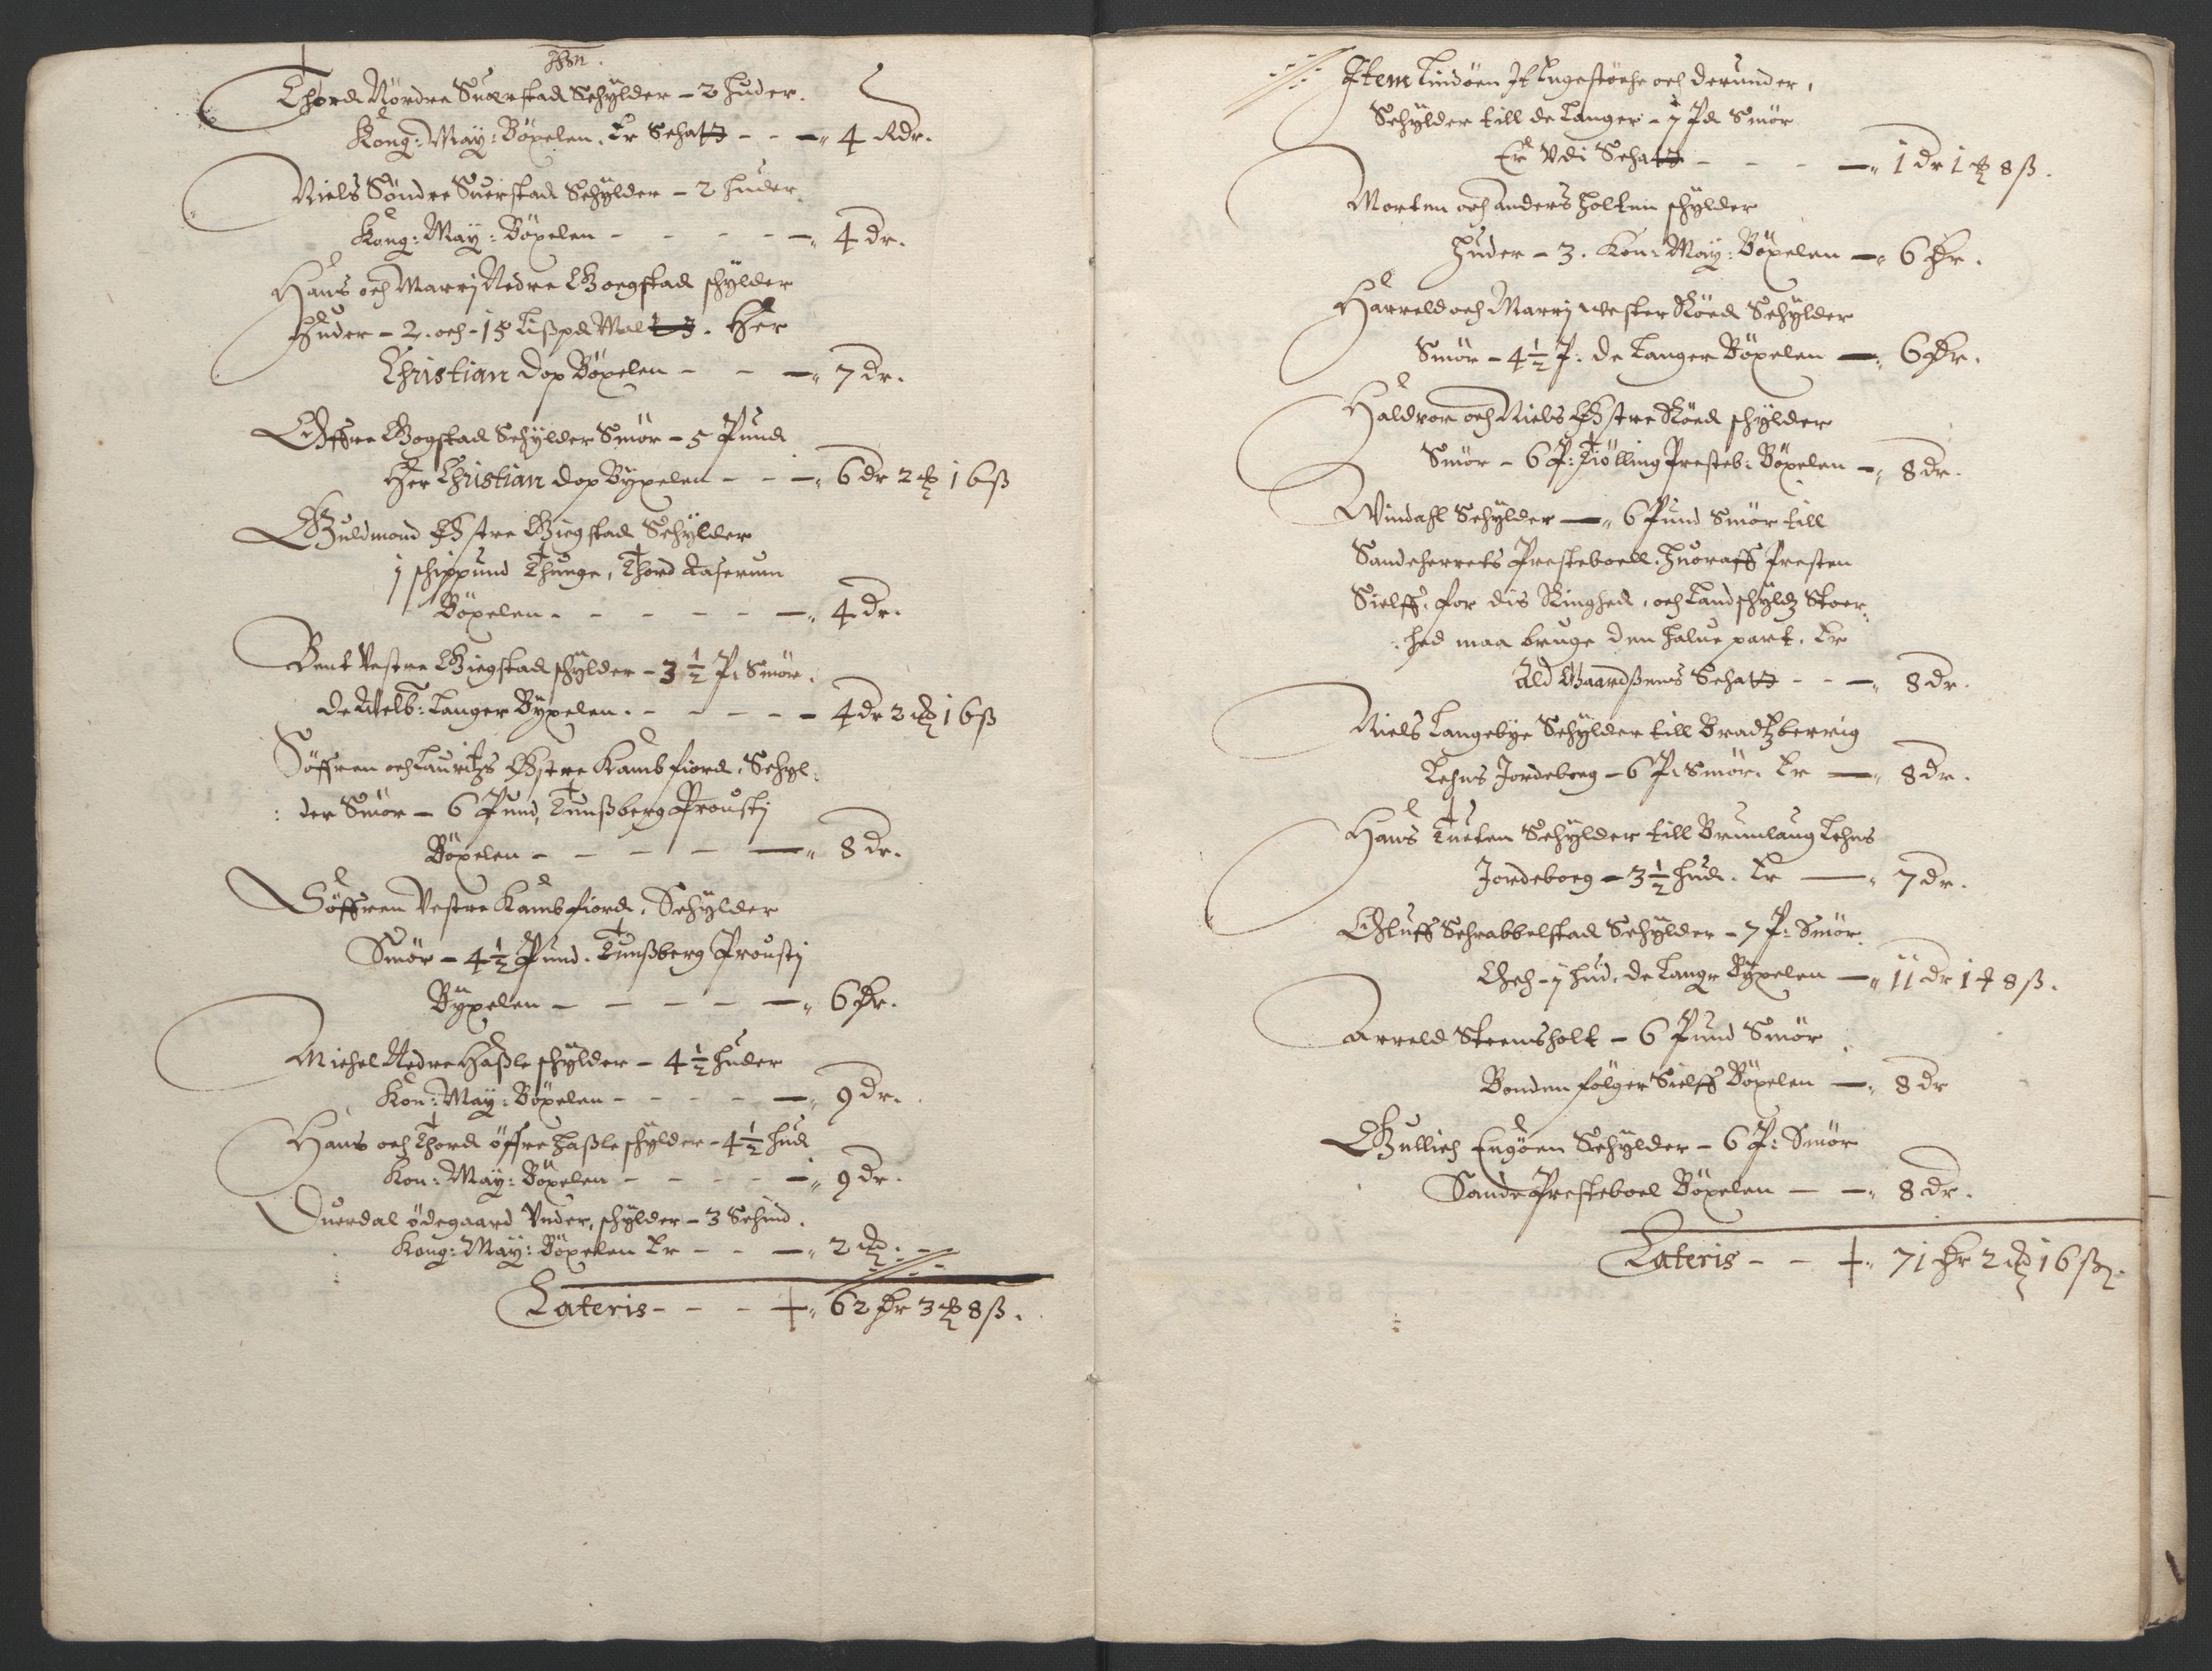 Thord Nordre Suerstad Schÿlder - 2 huder.
Kong: Maÿ: Böxelen. Er Schatt - - - 4 Rdr.
Niels Söndre Suerstad Schÿlder - 2 huder
Kong: Maÿ: Böxelen - - - - 4 dr.
Hans och Marrj Nedre Gogstad schÿlder
Huder - 2. och - 15 Lißpd Malt. Her
Christian Dop Böxelen - - - 7 dr.
Öffre Gogstad Schÿlder Smör - 5 Pund
Her Christian Dop Bÿxelen - - - 6 dr 2 16 ß
Guldmond Östre Giegstad Schÿlder
j schippund Thunge, Thord
Böxelen - - - - - 4 dr.
Bent Vestre Giegstad schÿlder - 3 ½ P: Smör.
De Welb: Langer Bÿxelen. - - - - 4 dr 2 16 ß
Söffren och Lauritzs Östre Kambfiord, Schÿl:
: der Smör - 6 Pund, Tunßberg Proustj
Böxelen - - - - - 8 dr.
Söffren Vestre Kambfiord, Schÿlder
Smör - 4 ½ Pund. Tunßberg Proustj
Bÿxelen - - - - - 6 dr.
Michel Nedre Haßle schÿlder - 4 ½ huder
Kon: Maÿ: Böxelen - - - - 9 dr.
Hans och Thord öffre Haßle schÿlder - 4 ½ hud
Kon: Maÿ: Böxelen - - - - 9 dr.
Duerdal ödegaard Under, schÿlder - 3 Schind.
Kong: Maÿ: Böxelen Er - - - 2
Lateris - - - 62 dr 3 8 ß.
Item Lindöen It Engestöche och derunder,
Schÿlder till de Langer - j Pd Smör
Er Udi Schatt - - - - 1 dr 1 8 ß.
Morten och Anders Holten schÿlder
Huder - 3. Kon: Maÿ: Böxelen - 6 dr.
Harreld och Marrj wester Röed Schÿlder
Smör - 4 ½ P. de Langer Böxelen - 6 dr.
Haldvor och Niels Östre Röed schÿlder
Smör - 6 P: Tiölling Presteb: Böxelen - 8 dr.
Windahl Schÿlder - 6 Pund Smör till
Sandeherrets Presteboell. Huoraff Presten
Sielff, for dis Ringhed, och Landschÿldz Stoer:
: hed maa bruge den halue part. Er
Ald Gaardßens Schatt - - - 8 dr.
Niels Langebye Schÿlder till Bradtzberrig
Lehns Jordeboeg - 6 P: Smör. Er - 8 dr.
Hans Tueten Schÿlder till Brunlaug Lehns
Jordeboeg - 3 ½ hud. Er - 7 dr.
Oluff Schrabbelstad Schÿlder - 7 P: Smör
Och - j hud. de Langr Bÿxelen - 11 dr 1 8 ß.
Arreld Steensholt - 6 Pund Smör
Bonden fölger Sielff Böxelen - 8 dr
Gullich Engöen Schÿlder - 6 P: Smör
Sande Presteboel Böxelen - - 8 dr.
Lateris - - 71 dr 2 16 ß.